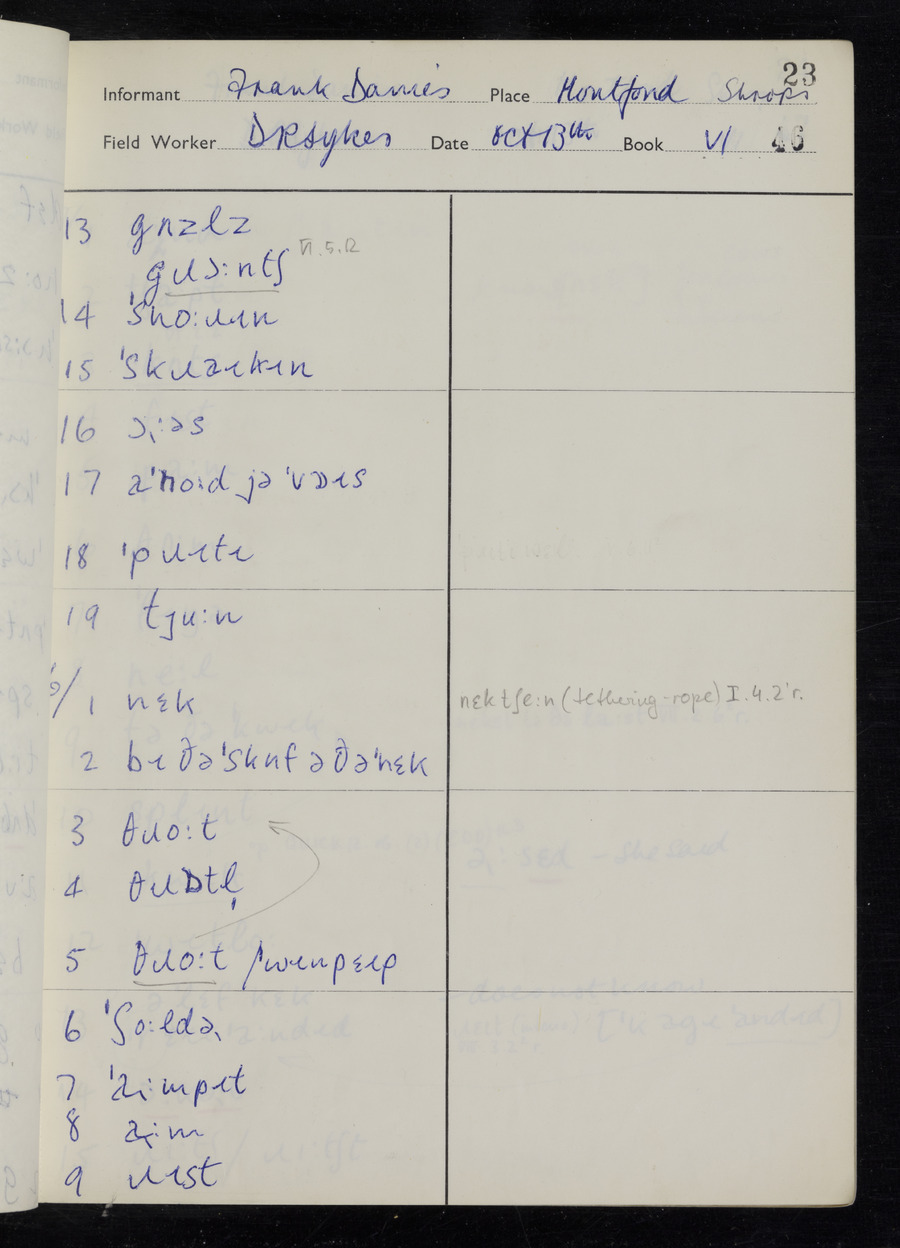 23
Informant Frank Davies Place Montford Shrops
Field Worker DRSykes Date Oct 13th Book VI 46
13 gɹɪzlz
gɹɔ:ntʃ VI.5.12
14 'snɔ:ɹɪn
15 'skɹaɪkɪn
16 ɔ˞:əs
17 a'nɔ:d jə 'vɒɪs
18 'pɹɪtɪ
19 tjʊ:n
6/1 nɛk nɛktʃe:n (tethering-rope) I.4.2'r.
2 bɪ ðə 'skɹʊf ə ðə 'nɛk
3 θɹo:t
4 θɹɒtɫ̩
5 θɹo:t / 'wɪnpɛɪp
6 'ʃo:ldə˞
7 'a˞:mpɪt
8 a˞:m
9 ɹɪst